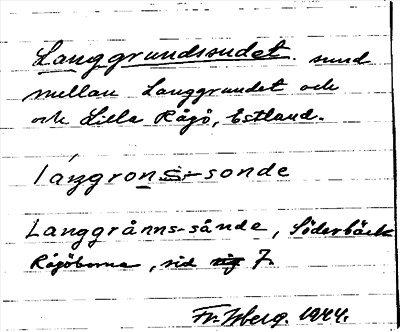 Langgrundsudet. sund
mellan Langgrundet och
och Lilla Rågö, Estland.
langgrons-sonde
Langgrånns-sånde, Söderbäck
Rågöborna, sid 7.
Fr. Isberg. 1944.